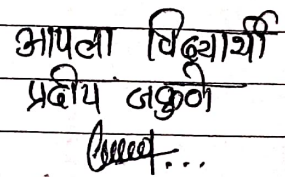 आपला विद्यार्थी
प्रदीप जकुणे